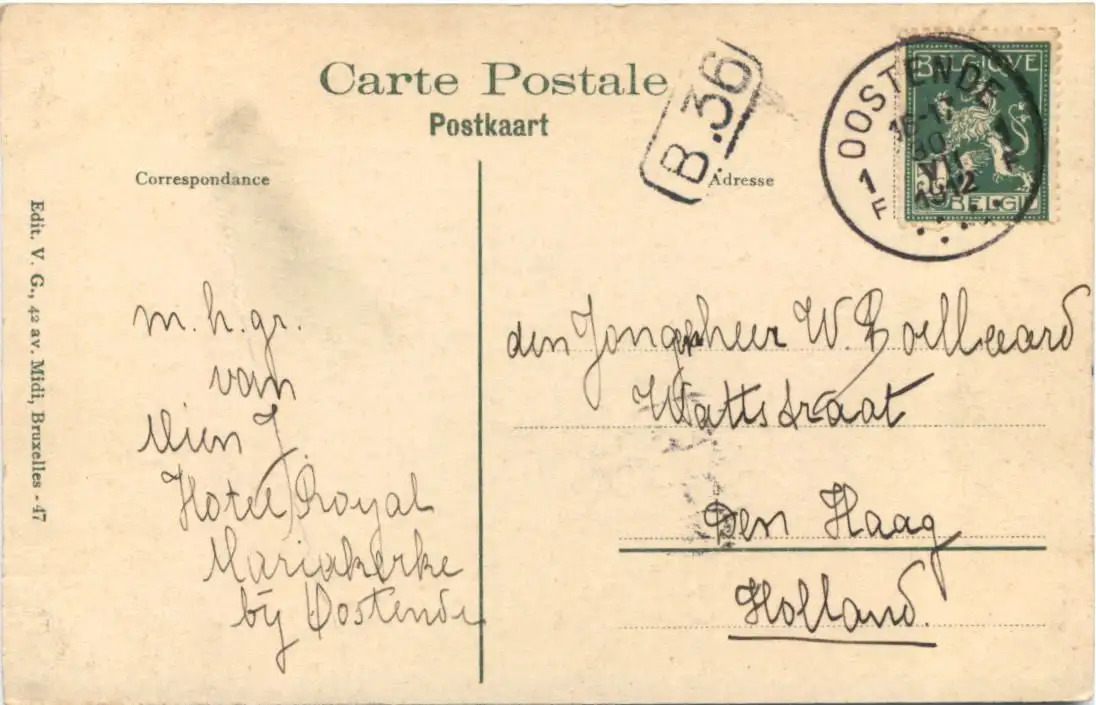 Carte Postale
Postkaart
B.36
OOSTENDE
16-17
30
VII
1912
1 F
1 F
BELGIQUE
BELGIË
Correspondance
Adresse
Edit. V. G., 42 av. Midi, Bruxelles - 47
m. h. gr.
van
Wien J.
Hotel Royal
Mariakerke
bij Oostende
den Jongeheer W. Boelleaard
Wattstraat
Den Haag
Holland.